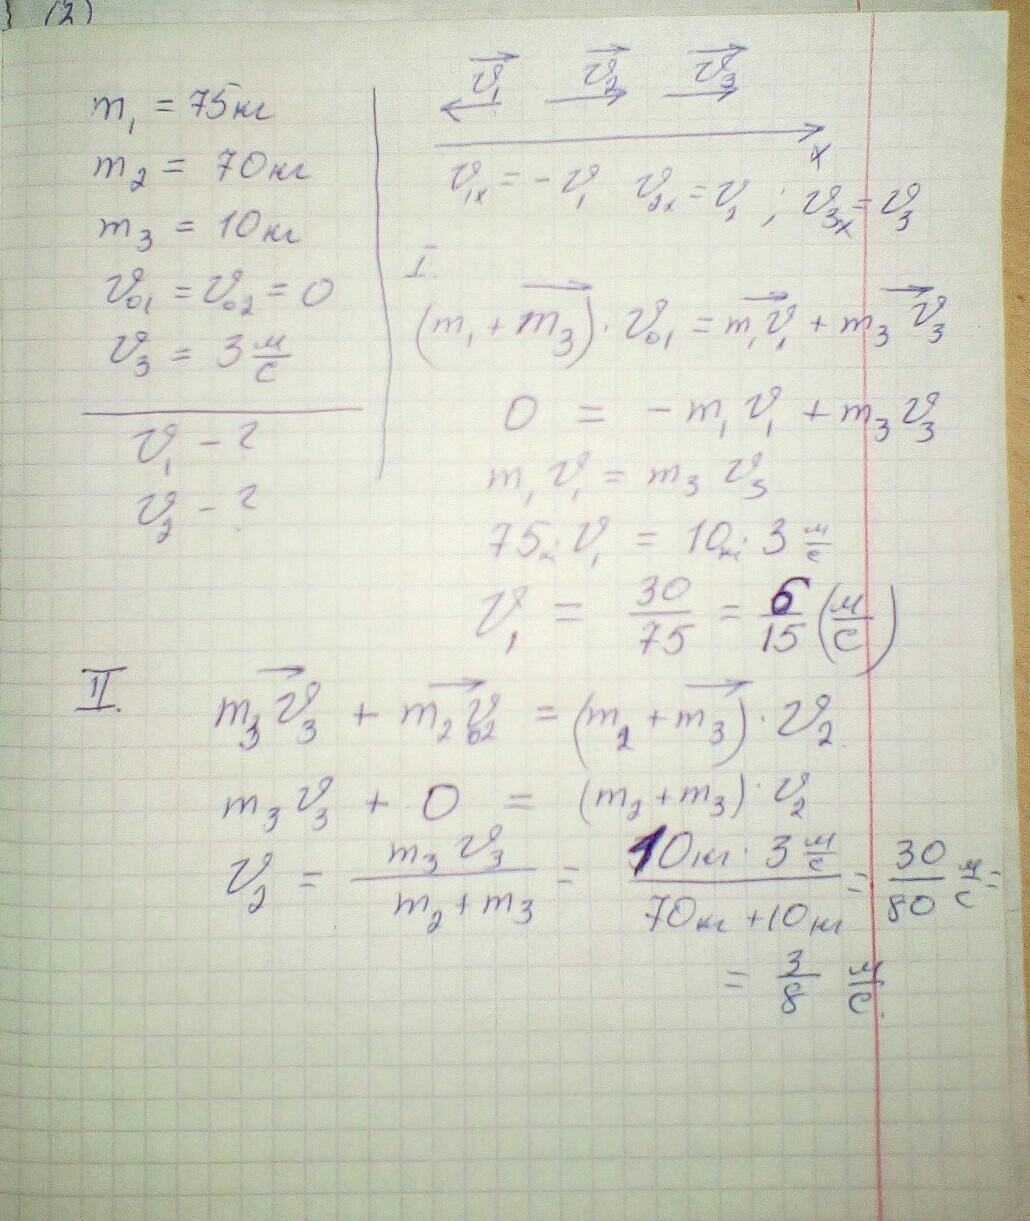 (2)
m₁ = 75кг
m₂ = 70кг
m₃ = 10кг
v₀₁ = v₀₂ = 0
v₃ = 3 м/с
v₁ - ?
v₂ - ?
v⃗₁ v⃗₂ v⃗₃
x
v₁ₓ = - v₁ v₂ₓ = v₂ ; v₃ₓ = v₃
I.
(m₁ + m₃) · v⃗₀₁ = m₁v⃗₁ + m₃ v⃗₃
0 = - m₁ v₁ + m₃ v₃
m₁ v₁ = m₃ v₃
75кг · v₁ = 10кг · 3 м/с
v₁ = 30/75 = 6/15 (м/с)
II.
m₃ v⃗₃ + m₂ v⃗₀₂ = (m₂ + m₃) · v⃗₂
m₃ v₃ + 0 = (m₂ + m₃) · v₂
v₂ = m₃ v₃ / m₂ + m₃ = 10кг · 3 м/с / 70кг + 10кг = 30/80 м/с =
= 3/8 м/с.